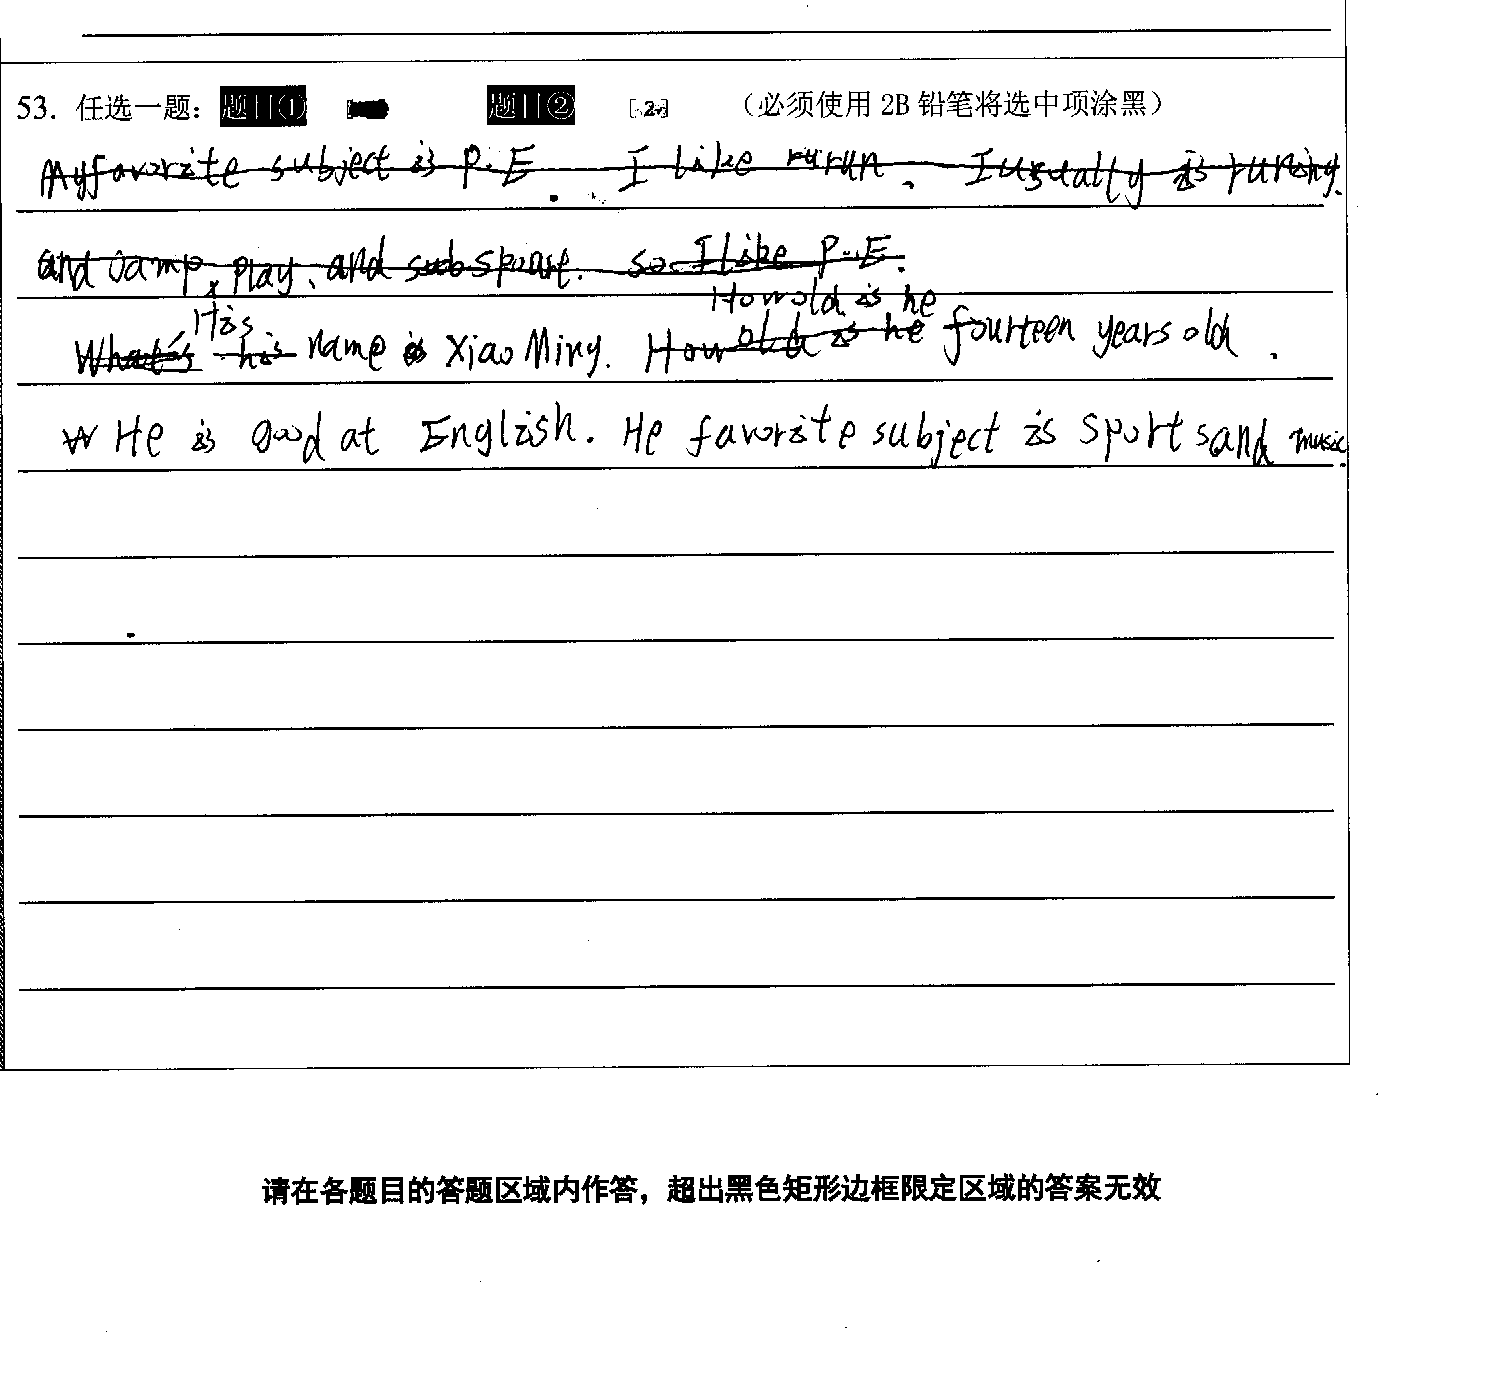 53. 任选一题： 题目① 题目② [2] （必须使用 2B 铅笔将选中项涂黑）
My favorite subject is P.E. I like rurun. I usually is runing.
and Jamp, play, and sub sport. so I like P.E.
How old is he
His
What's his name is Xiao Ming. How old is he fourteen years old.
W He is good at English. He favorite subject is sports and music.
请在各题目的答题区域内作答，超出黑色矩形边框限定区域的答案无效